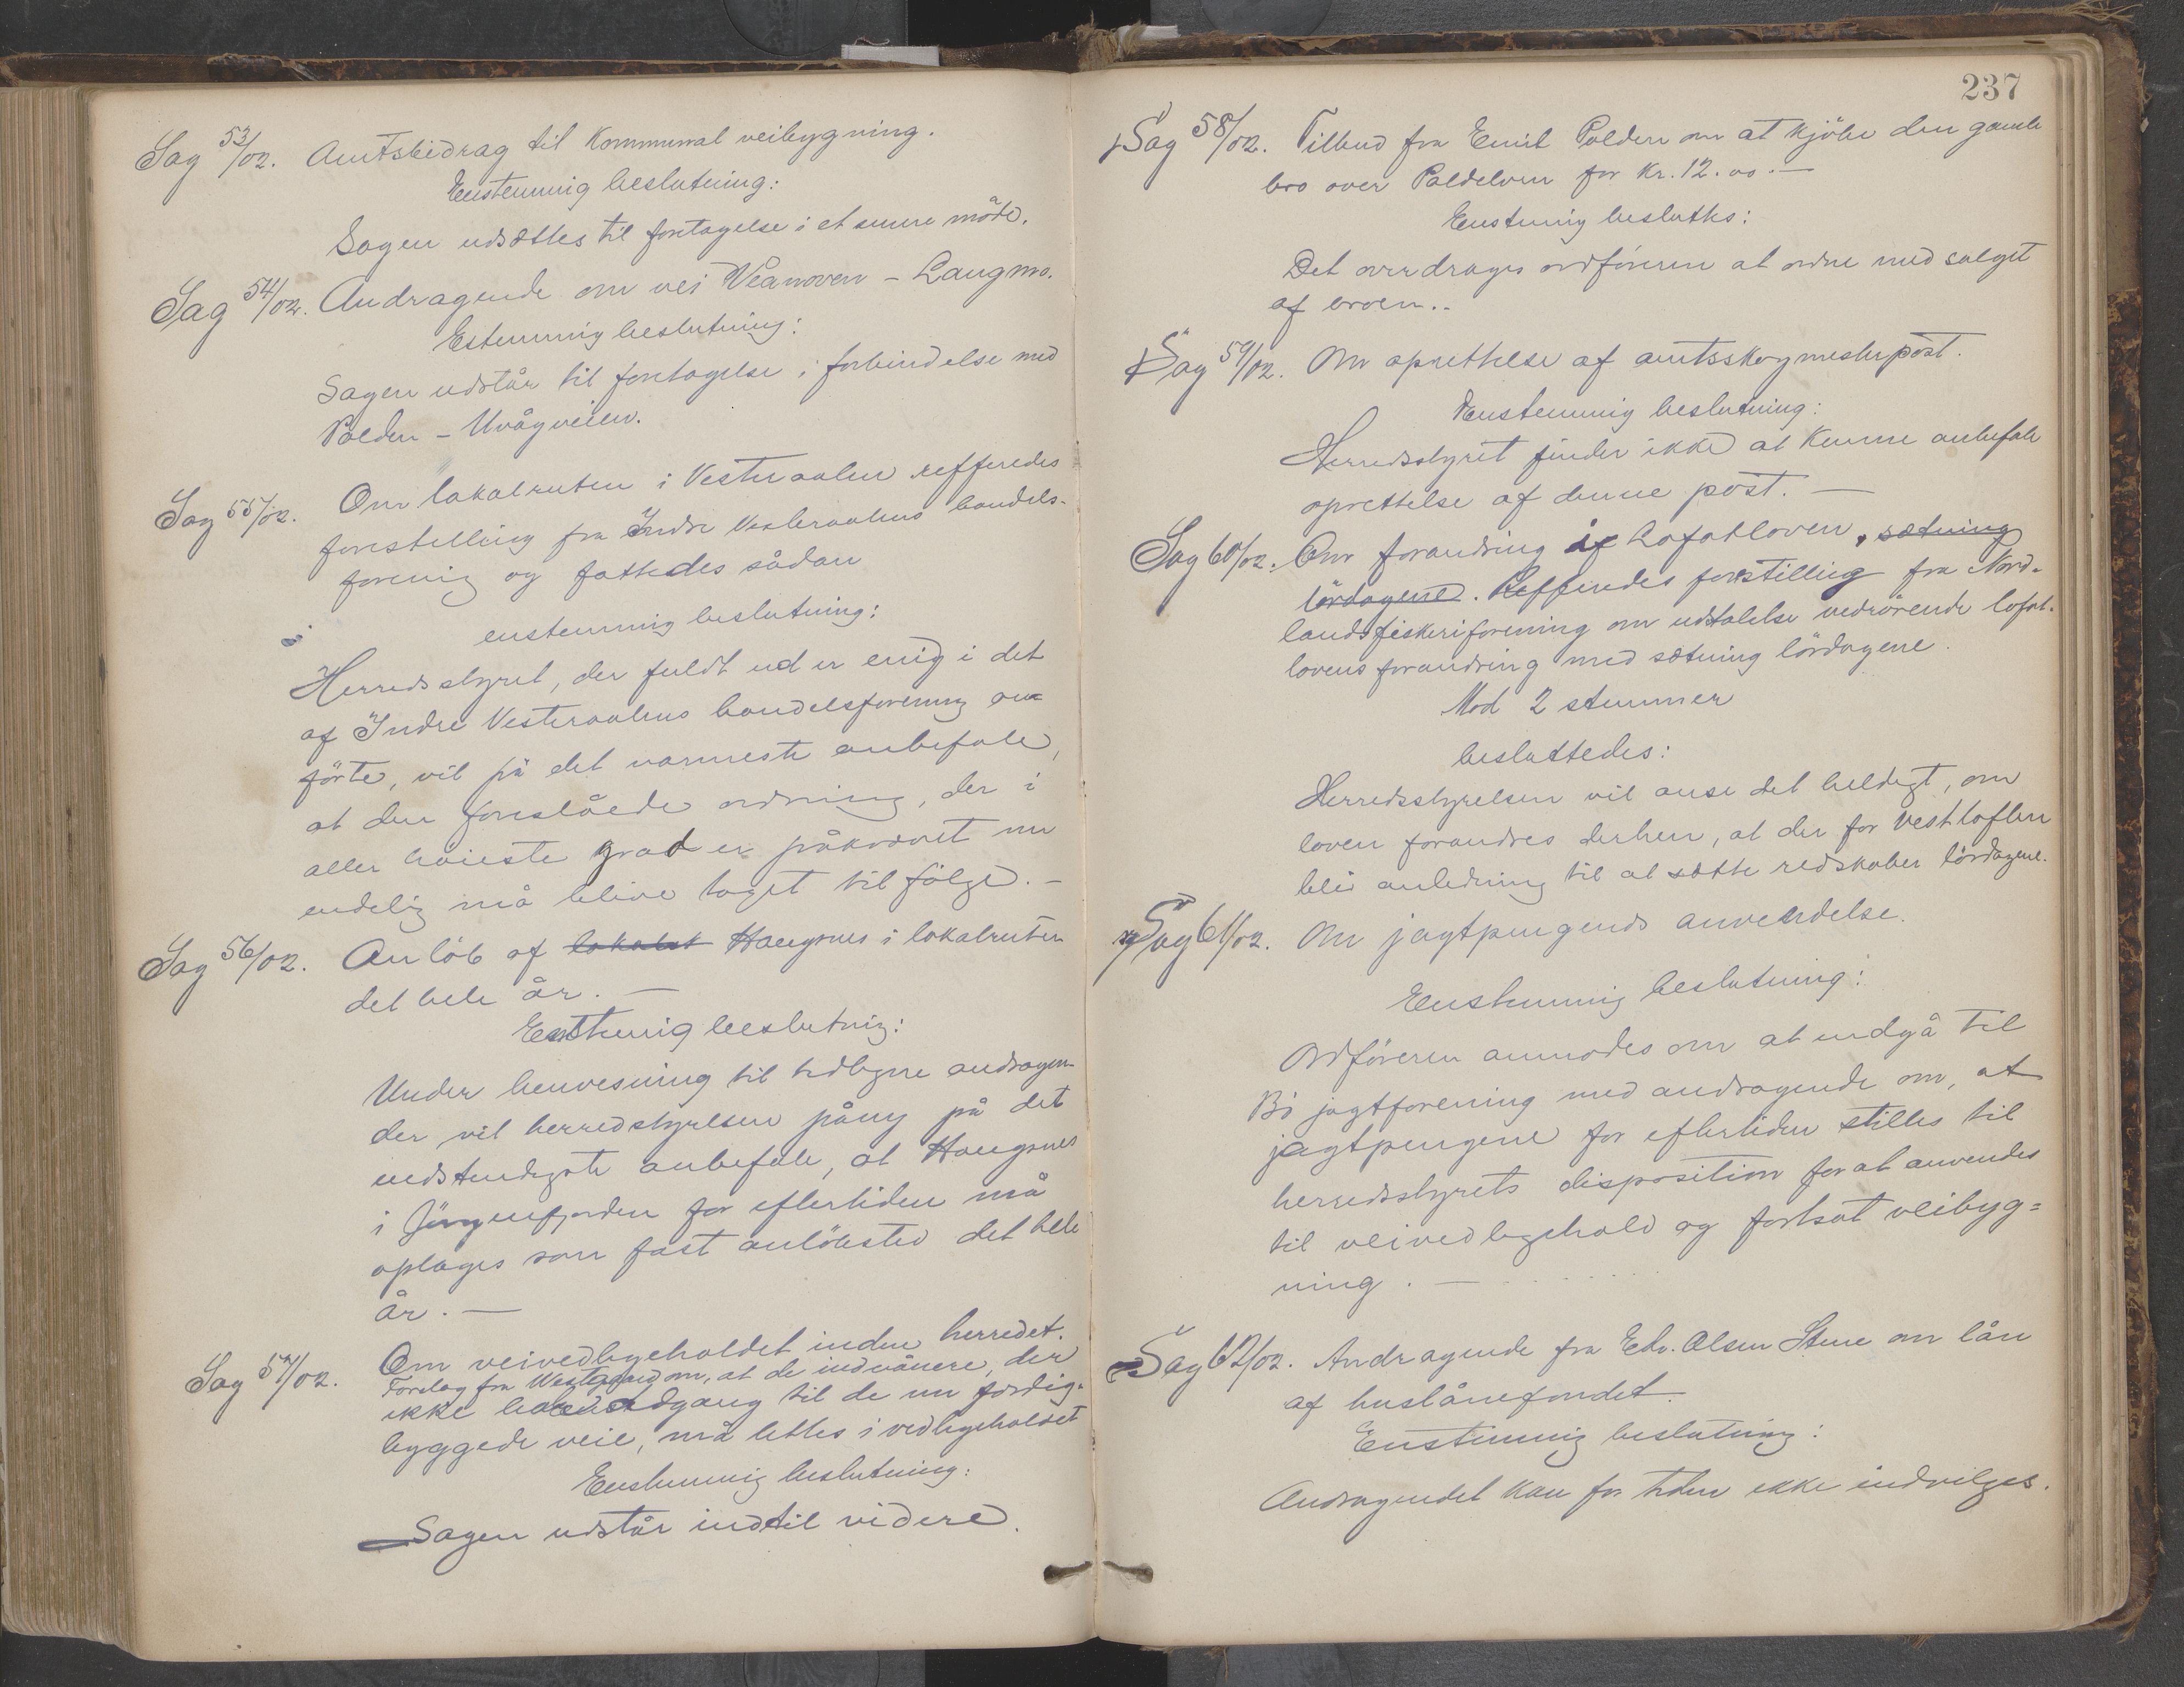 Sag 53/02. Amtsbidrag til kommunal veibygning.
Enstemmig beslutning:
Sagen udsættes til foretagelse i et senere möde.
Sag 54/02. Andragende om vei Veanoven - Langmo.
Estemmig beslutning:
Sagen udstår til foretagelse i forbindelse med
Polden - Uvågveien.
Sag 55/02. Om lokalruten i Vesteraalen refferedes
forestilling fra Indre Vesteraalens handels-
forening og fattedes sådan
enstemmig beslutning:
Herredsstyret, der fuldt ud er enig i det
af Indre Vesteraalens handelsforening an-
förte, vil på det varmeste anbefale,
at den foreslåede ordning, der i
aller höieste grad er påkrævet nu
endelig må blive taget til fölge. -
Sag 56/02. Anlöb af lokalrut Haugsnes i lokalruten
det hele år. -
Enstemig beslutnig:
Under henvesning til tidligere andragen-
der vil herredstyrelsen påny på det
indstendigste anbefale, at Haugsnes
i Jörgenfjorden for eftertiden må
optages som fast anlöbssted det hele
år. -
Sag 57/02. Om veivedligeholdet inden herredet.
Forslag fra Westgaard om, at de indvånere, der
ikke have adgang til de nu færdig-
byggede veie, må lettes i vedligeholdet
Enstemmig beslutning:
Sagen udstår indtil videre.
237
Sag 58/02. Tilbud fra Emil Polden om at kjöbe den gamle
bro over Poldelven for Kr. 12.00. -
Enstemig besluttes:
Det overdrages ordföreren at ordne med salget
af broen..
Sag 59/02. Om oprettelse af amtsskogmesterpost.
Enstemmig beslutning:
Herredsstyret finder ikke at kunne anbefale
oprettelse af denne post. -
Sag 60/02. Om forandring af Lofotloven, sætning
lördagene. Refferedes forestilling fra Nord-
landsfiskeriforening om udtalelse vedrörende lofot-
lovens forandring med sætning lördagene.
Mod 2 stemmer
besluttedes:
Herredsstyrelsen vil anse det heldigt, om
loven forandres derhen, at der for Vestlofoten
blir anledning til at sætte redskaber lördagene.
Sag 61/02. Om jagtpengenes anvendelse.
Enstemmig beslutning:
Ordföreren anmodes om at indgå til
Bö jagtforening med andragende om, at
jagtpengene for eftertiden stilles til
herredsstyrets disposition for at anvendes
til veivedligehold og fortsat veibyg=
ning. -
Sag 62/02. Andragende fra Edv. Olsen Stene om lån
af huslånefondet.
Enstemmig beslutning:
Andragendet kan for tiden ikke indvilges.